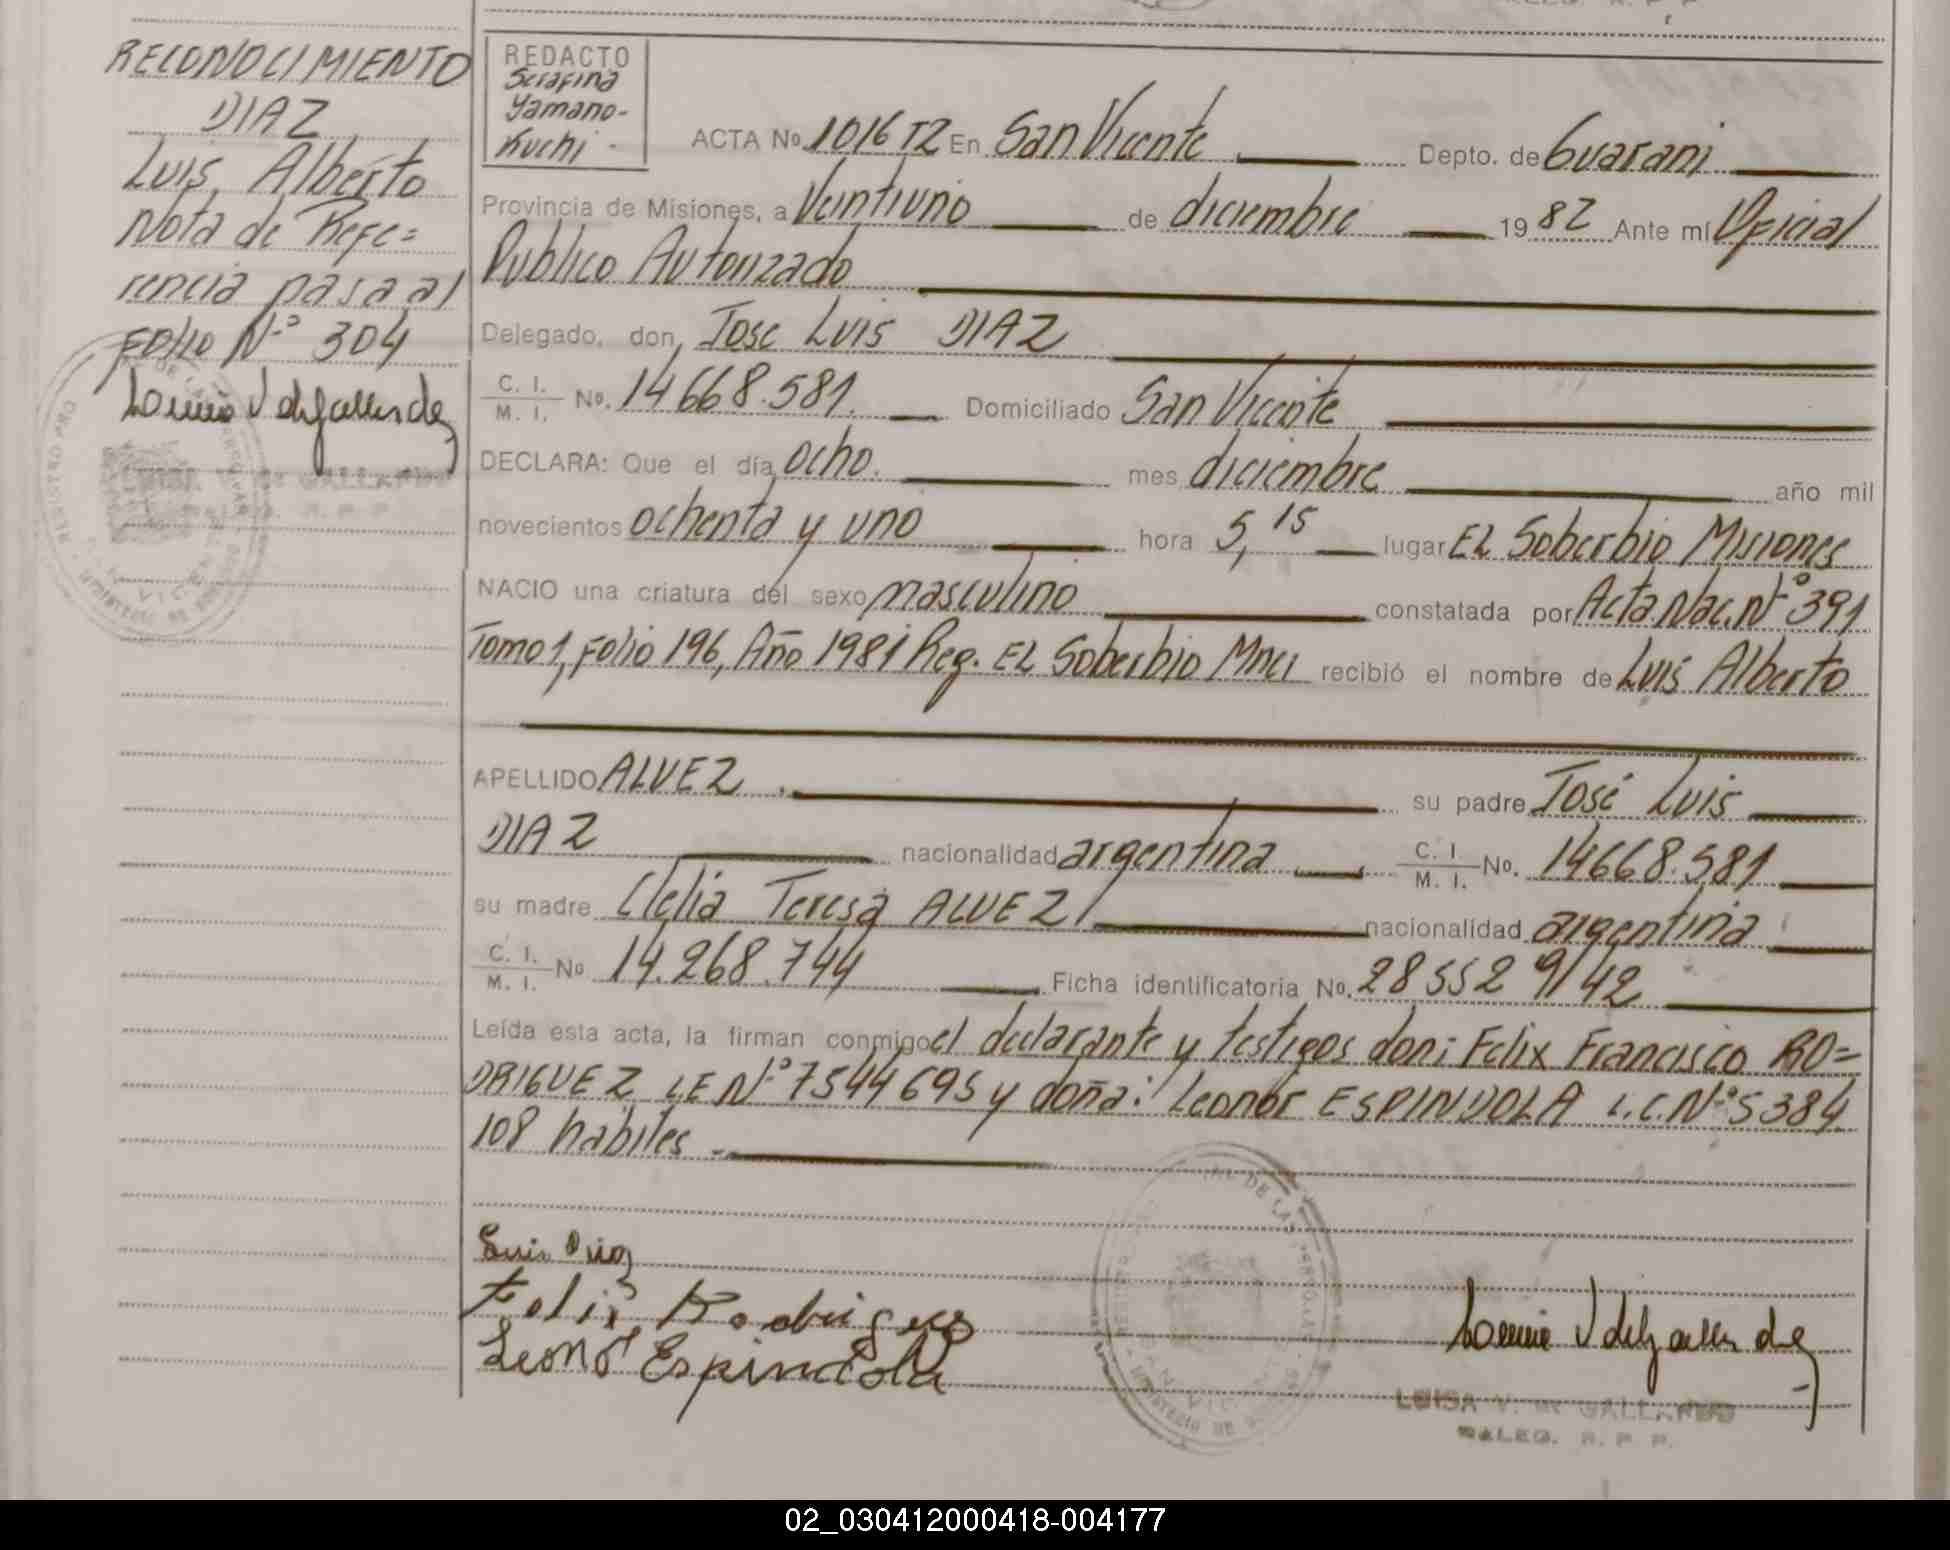 RECONOCIMIENTO
DIAZ
Luis, Alberto
Nota de Refe=
rencia pasa al
Folio N-º 304
LUISA V. de GALLARDO
DALEG. R. P. P.
REDACTO
Serafina
Yamano-
Kuchi -
ACTA No. 1016 T2 En San Vicente Depto. de Guarani
Provincia de Misiones, a Veintiuno de diciembre 1982 Ante mí Oficial
Publico Autorizado
Delegado, don, Jose Luis DIAZ
C. I. / M. I. No. 14668.581. Domiciliado San Vicente
DECLARA: Que el día ocho. mes diciembre año mil
novecientos ochenta y uno hora 5,15 lugar EL Soberbio Misiones
NACIO una criatura del sexo masculino constatada por Acta Nac. Nº 391
Tomo 1, Folio 196, Año 1981 Reg. EL Soberbio Mnes recibió el nombre de Luis Alberto
APELLIDO ALVEZ . su padre José Luis
DIAZ nacionalidad argentina C. I. / M. I. No. 14668.581
su madre Clelia Teresa ALVEZ nacionalidad argentina
C. I. / M. I. No 14.268.744 Ficha identificatoria No. 28552 9/42
Leída esta acta, la firman conmigo el declarante y testigos don: Felix Francisco RO=
DRIGUEZ LE Nº 7544695 y doña: Leonor ESPINDOLA L.C. Nº 5384
108 habiles -
Luis Diaz
Felix Rodriguez
Leonor Espindola
LUISA V. de GALLARDO
DALEG. R. P. P.
02_030412000418-004177